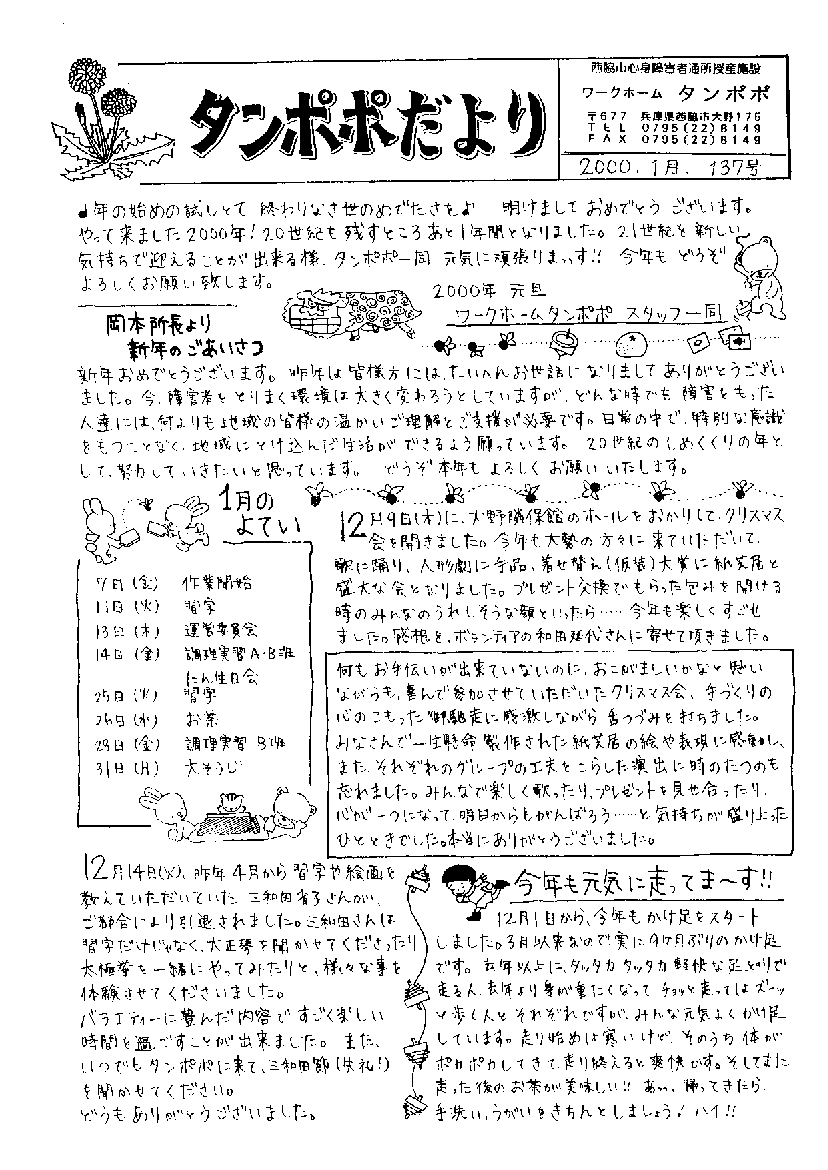 タンポポだより
西脇市心身障害者通所授産施設
ワークホーム タンポポ
〒677 兵庫県西脇市大野176
TEL 0795(22)8149
FAX 0795(22)8149
2000.1月. 137号
♩年の始めの試しとて 終わりなき世のめでたさを♪ 明けまして おめでとう ございます。
やって来ました2000年!20世紀も残すところあと1年間となりました。21世紀を新しい
気持ちで迎えることが出来る様、タンポポ一同 元気に頑張りまっす!! 今年も どうぞ
よろしくお願い致します。
2000年 元旦
ワークホームタンポポ スタッフ一同
岡本所長より
新年のごあいさつ
新年おめでとうございます。昨年は皆様方には、たいへんお世話になりまして ありがとうござい
ました。今、障害者をとりまく環境は大きく変わろうとしていますが、どんな時でも 障害をもった
人達には、何よりも地域の皆様の温かいご理解とご支援が必要です。日常の中で、特別な意識
をもつことなく、地域にとけ込んだ生活が できるよう願っています。 20世紀のしめくくりの年と
して、努力していきたいと思っています。 どうぞ本年も よろしく お願い いたします。
1月の
よてい
7日(金) 作業開始
11日(火) 習字
13日(木) 運営委員会
14日(金) 調理実習A・B班
たん生日会
25日(火) 習字
26日(水) お茶
28日(金) 調理実習 B班
31日(月) 大そうじ
12月9日(木)に、大野隣保館のホールを おかりして、クリスマス
会を開きました。今年も大勢の 方々に 来ていただいて、
歌に踊り、人形劇に手品、着せ替え(仮装)大賞に紙芝居と
盛大な会となりました。プレゼント交換で もらった包みを開ける
時のみんなのうれしそうな顔といったら…… 今年も楽しくすごせ
ました。感想を、ボランティアの和田廷代さんに寄せて頂きました。
何もお手伝いが出来ていないのに、おこがましいかなと 思い
ながらも、喜んで参加させていただいたクリスマス会、手づくりの
心のこもった御馳走に感激しながら 舌つづみを打ちました。
みなさんで一生懸命 製作された紙芝居の絵や表現に感動し、
また、それぞれのグループの工夫をこらした演出に時のたつのも
忘れました。みんなで楽しく歌ったり、プレゼントを見せ合ったり、
心が一つになって、明日からもがんばろう……と気持ちが盛り上った
ひとときでした。本当にありがとうございました。
12月14日(火)、昨年4月から習字や絵画を
教えていただいていた 三和田省子さんが、
ご都合により引退されました。三和田さんは
習字だけじゃなく、大正琴を聞かせてくださったり
太極拳を一緒にやってみたりと、様々な事を
体験させてくださいました。
バラエティーに豊んだ内容で すごく楽しい
時間を過ごすことが出来ました。 また、
いつでもタンポポに来て、三和田節(失礼!)
を聞かせてください。
どうも ありがとうございました。
今年も元気に走ってま〜す!!
12月1日から、今年もかけ足をスタート
しました。3月以来なので実に9ヶ月ぶりのかけ足
です。去年以上に、タッタカ タッタカ 軽快な足どりで
走る人、去年より身が重たくなって チョッと走ってはズーッ
と歩く人と それぞれですが、みんな元気よくかけ足
しています。走り始めは寒いけど、そのうち 体が
ポカポカしてきて、走り終えると爽快です。そしてまた
走った後のお茶が美味しい!! あっ、帰ってきたら、
手洗い、うがいをきちんとしましょう! ハイ!!